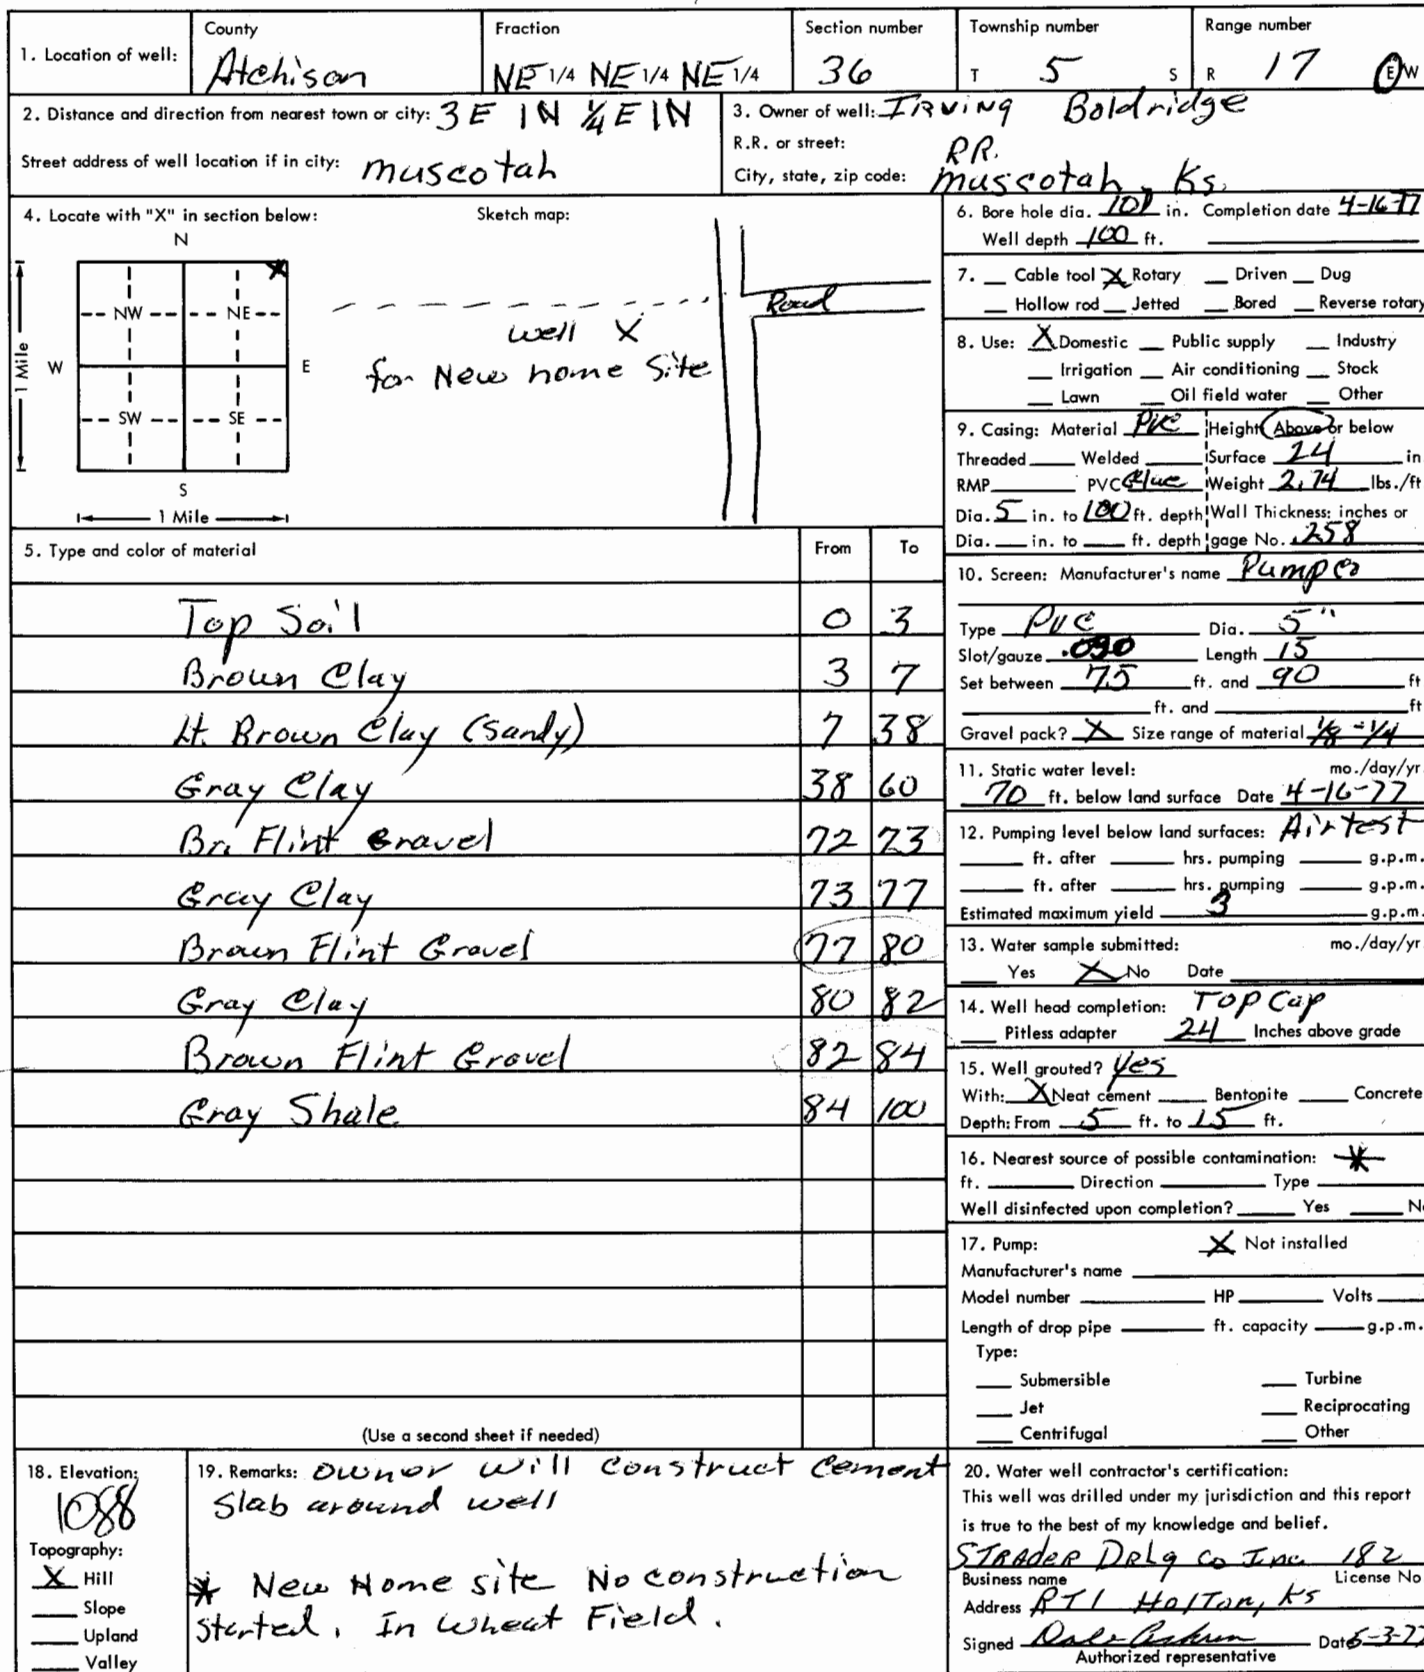 County Fraction Section number Township number Range number
1. Location of well: Atchison NE 1/4 NE 1/4 NE 1/4 36 T 5 S R 17 E W
2. Distance and direction from nearest town or city: 3 E 1 N 1/4 E 1 N
Street address of well location if in city: muscotah
3. Owner of well: Irving Boldridge
R.R. or street: RR.
City, state, zip code: muscotah, Ks.
4. Locate with "X" in section below: Sketch map:
N
NW NE
W E
SW SE
S
1 Mile
1 Mile
Road
well X
for New home Site
5. Type and color of material From To
Top Soil 0 3
Brown Clay 3 7
Lt. Brown Clay (Sandy) 7 38
Gray Clay 38 60
Br. Flint Gravel 72 73
Gray Clay 73 77
Brown Flint Gravel 77 80
Gray Clay 80 82
Brown Flint Gravel 82 84
Gray Shale 84 100
(Use a second sheet if needed)
6. Bore hole dia. in. Completion date 4-16-77
Well depth 100 ft.
7. Cable tool X Rotary Driven Dug
Hollow rod Jetted Bored Reverse rotary
8. Use: X Domestic Public supply Industry
Irrigation Air conditioning Stock
Lawn Oil field water Other
9. Casing: Material PVC Height: Above or below
Threaded Welded Surface 24 in.
RMP PVC Glue Weight 2.74 lbs./ft
Dia. 5 in. to 100 ft. depth Wall Thickness: inches or
Dia. in. to ft. depth gage No. .258
10. Screen: Manufacturer's name Pumpco
Type PVC Dia. 5"
Slot/gauze Length 15
Set between 75 ft. and 90 ft
ft. and ft
Gravel pack? X Size range of material 1/8 - 1/4
11. Static water level: mo./day/yr.
70 ft. below land surface Date 4-16-77
12. Pumping level below land surfaces: Air test
ft. after hrs. pumping g.p.m.
ft. after hrs. pumping g.p.m.
Estimated maximum yield 3 g.p.m.
13. Water sample submitted: mo./day/yr
Yes X No Date
14. Well head completion: Top Cap
Pitless adapter 24 Inches above grade
15. Well grouted? Yes
With: X Neat cement Bentonite Concrete
Depth: From 5 ft. to 15 ft.
16. Nearest source of possible contamination: *
ft. Direction Type
Well disinfected upon completion? Yes No
17. Pump: X Not installed
Manufacturer's name
Model number HP Volts
Length of drop pipe ft. capacity g.p.m.
Type:
Submersible Turbine
Jet Reciprocating
Centrifugal Other
18. Elevation:
1088
Topography:
X Hill
Slope
Upland
Valley
19. Remarks: Owner will construct cement
Slab around well
* New Home site No construction
started. In Wheat Field.
20. Water well contractor's certification:
This well was drilled under my jurisdiction and this report
is true to the best of my knowledge and belief.
STRADER DRLG CO Inc. 182
Business name License No
Address RT1 Holton, Ks
Signed Dale Date 5-3-77
Authorized representative